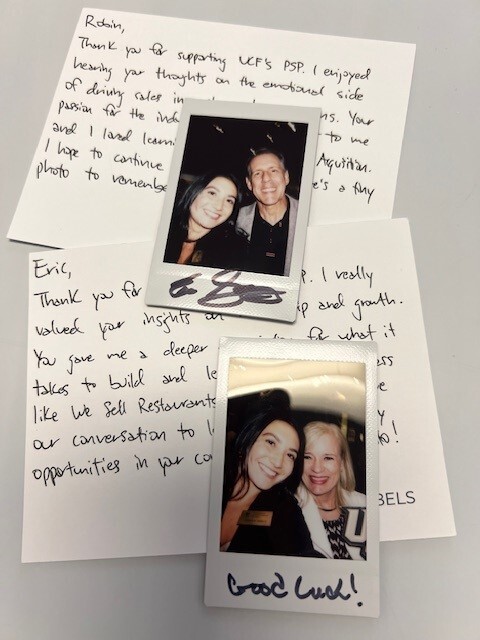 Robin,
Thank you for supporting UCF's PSP. I enjoyed
hearing your thoughts on the emotional side
of driving sales in
ns. Your
passion for the indu
to me
and I loved learni
Aquisition.
I hope to continue
e's a tiny
photo to remembe
Eric,
Thank you for
P. I really
valued your insights on
ip and growth.
You gave me a deeper
for what it
takes to build and le
ess
like We Sell Restaurants
our conversation to l
y
opportunities in your co
to!
BELS
Good Luck!